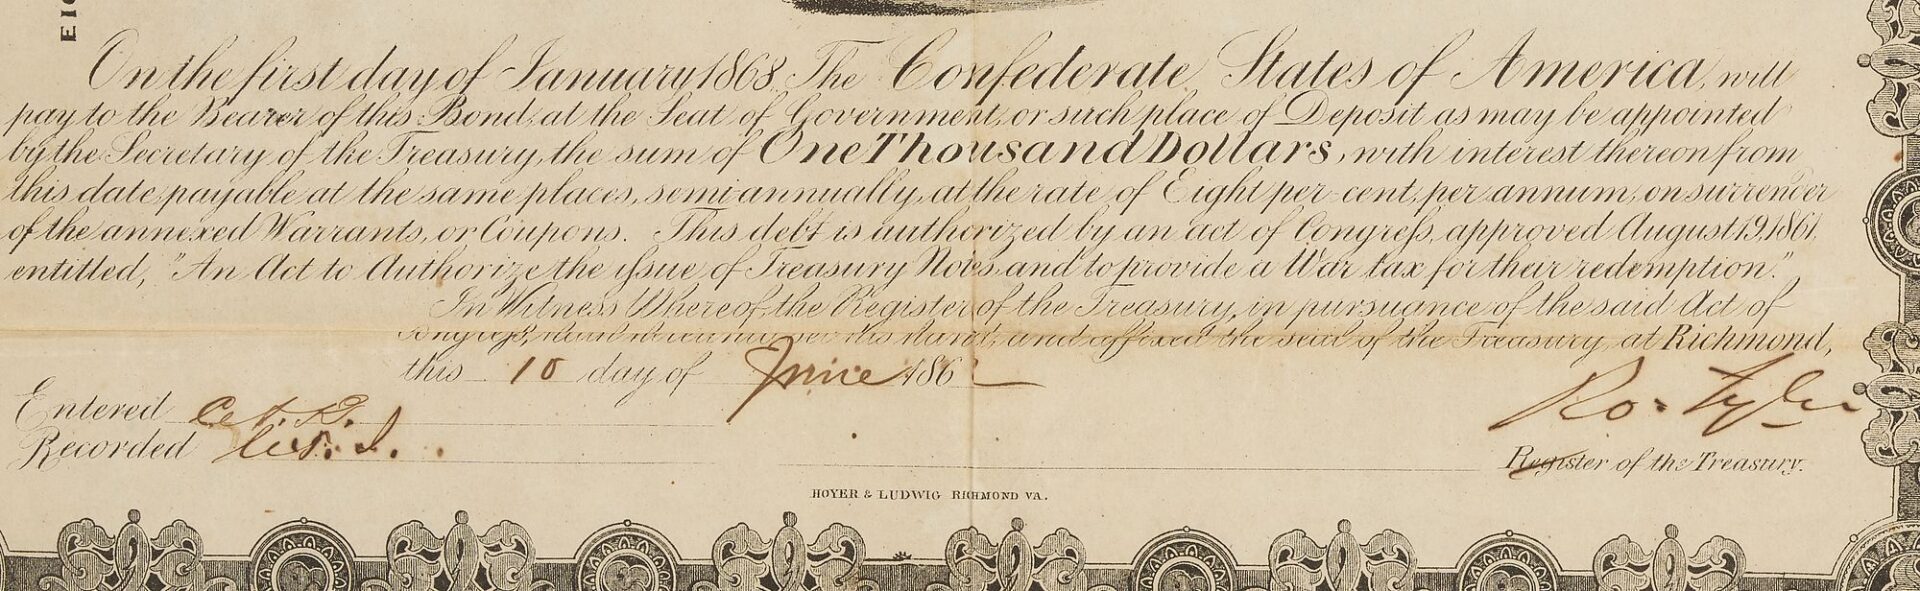 EIG
On the first day of January, 1868. The Confederate States of America, will
pay to the Bearer of this Bond, at the Seat of Government, or such place of Deposit as may be appointed
by the Secretary of the Treasury, the sum of One Thousand Dollars, with interest thereon from
this date, payable at the same places, semi-annually, at the rate of Eight per-cent, per annum, on surrender
of the annexed Warrants, or Coupons. This debt is authorized by an act of Congress, approved August 19, 1861,
entitled, "An Act to Authorize the issue of Treasury Notes, and to provide a War tax for their redemption."
In Witness Whereof, the Register of the Treasury, in pursuance of the said Act of
Congress, hath hereunto set his hand, and affixed the seal of the Treasury, at Richmond,
this 10 day of June 186
Entered
Recorded
Ro. Tyler
Register of the Treasury.
HOYER & LUDWIG RICHMOND VA.